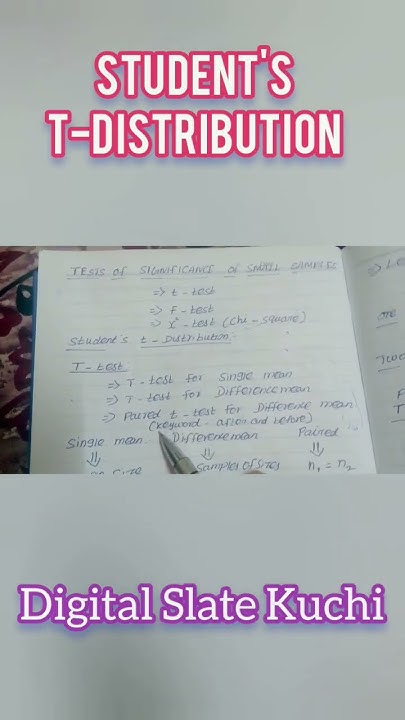 STUDENT'S
T-DISTRIBUTION
TESTS OF SIGNIFICANCE OF SMALL SAMPLES
=> t - test
=> F - test
=> χ² - test (chi - square)
Student's t - Distribution:
T - test
=> T - test for Single mean
=> T - test for Difference mean
=> Paired t - test for Difference mean
(keyword - after and before)
Single mean Difference mean Paired
Samples of Sizes n₁ = n₂
Digital Slate Kuchi